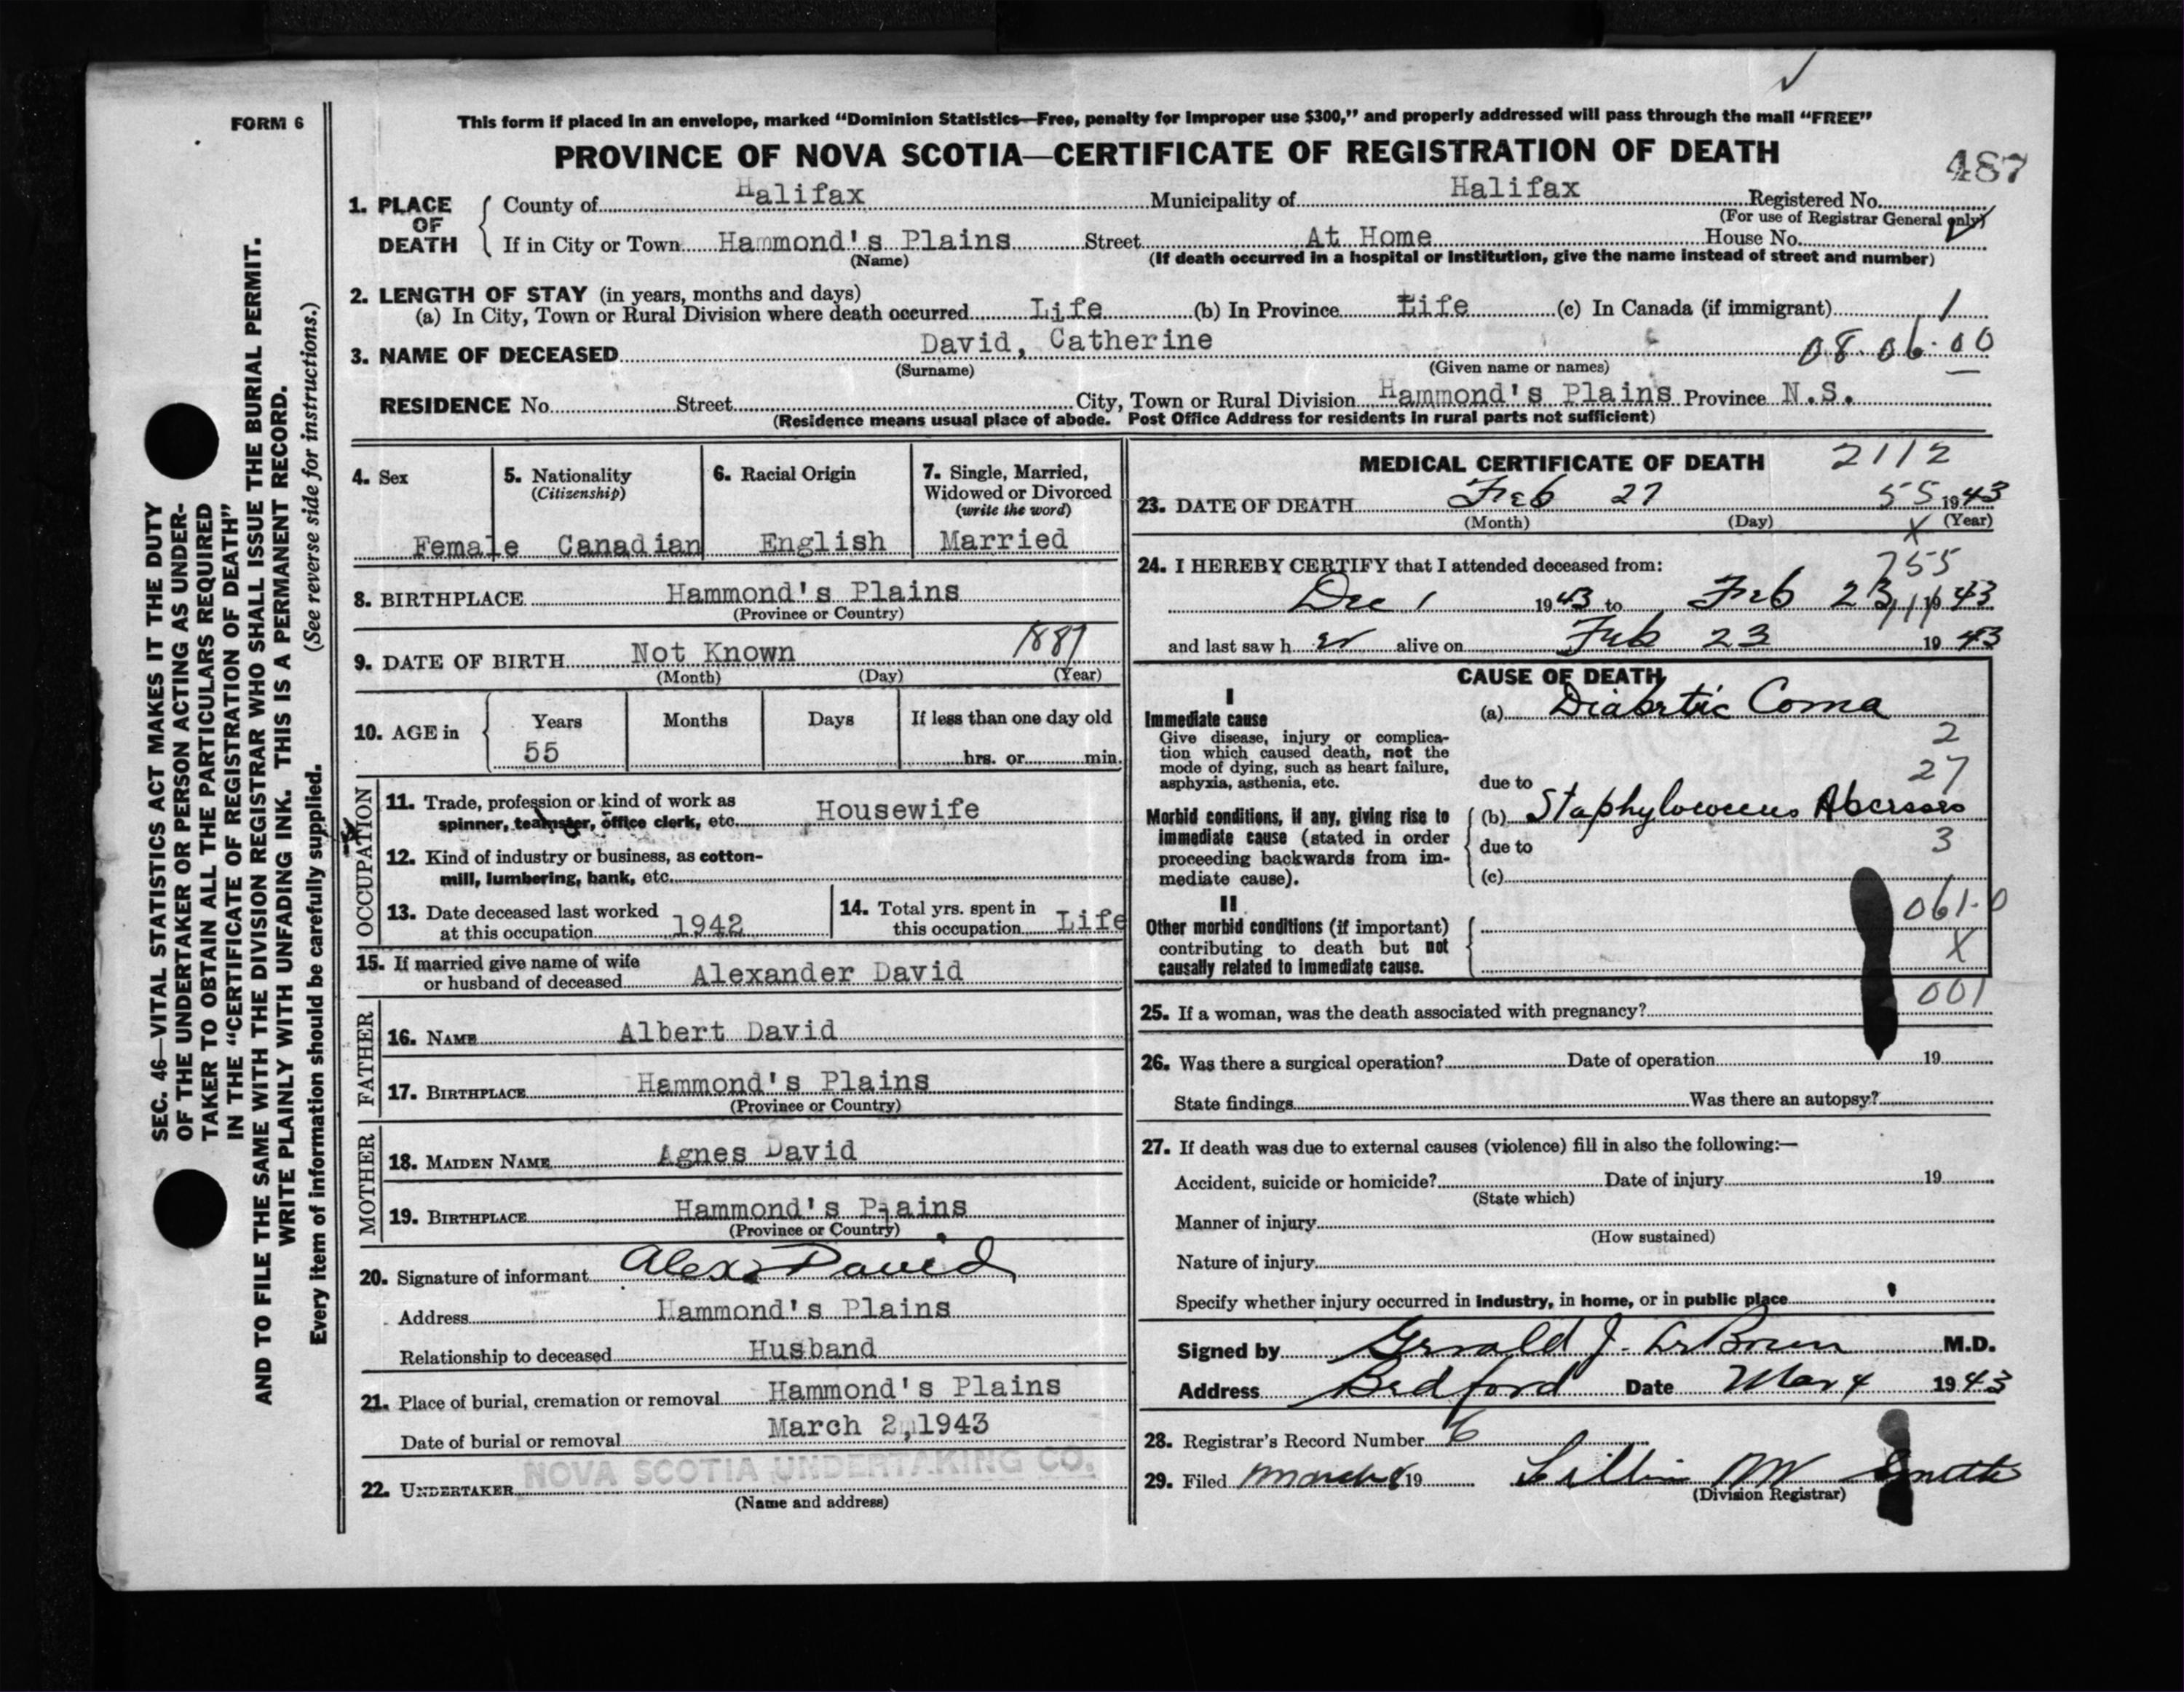 FORM 6
This form if placed in an envelope, marked “Dominion Statistics—Free, penalty for improper use $300,” and properly addressed will pass through the mail “FREE”
PROVINCE OF NOVA SCOTIA—CERTIFICATE OF REGISTRATION OF DEATH
487
1. PLACE OF DEATH
County of Halifax Municipality of Halifax Registered No.
(For use of Registrar General only)
If in City or Town Hammond's Plains Street At Home House No.
(Name) (If death occurred in a hospital or institution, give the name instead of street and number)
2. LENGTH OF STAY (in years, months and days)
(a) In City, Town or Rural Division where death occurred Life (b) In Province Life (c) In Canada (if immigrant) 1
3. NAME OF DECEASED David, Catherine 08.06.00
(Surname) (Given name or names)
RESIDENCE No. Street City, Town or Rural Division Hammond's Plains Province N.S.
(Residence means usual place of abode. Post Office Address for residents in rural parts not sufficient)
4. Sex
Female
5. Nationality
(Citizenship)
Canadian
6. Racial Origin
English
7. Single, Married,
Widowed or Divorced
(write the word)
Married
8. BIRTHPLACE Hammond's Plains
(Province or Country)
9. DATE OF BIRTH Not Known 1887
(Month) (Day) (Year)
10. AGE in
Years Months Days If less than one day old
55 hrs. or min.
OCCUPATION
11. Trade, profession or kind of work as
spinner, teamster, office clerk, etc. Housewife
12. Kind of industry or business, as cotton-
mill, lumbering, bank, etc.
13. Date deceased last worked
at this occupation 1942
14. Total yrs. spent in
this occupation Life
15. If married give name of wife
or husband of deceased Alexander David
FATHER
16. NAME Albert David
17. BIRTHPLACE Hammond's Plains
(Province or Country)
MOTHER
18. MAIDEN NAME Agnes David
19. BIRTHPLACE Hammond's Plains
(Province or Country)
20. Signature of informant Alex David
Address Hammond's Plains
Relationship to deceased Husband
21. Place of burial, cremation or removal Hammond's Plains
Date of burial or removal March 2, 1943
22. UNDERTAKER NOVA SCOTIA UNDERTAKING CO.
(Name and address)
MEDICAL CERTIFICATE OF DEATH 2112
23. DATE OF DEATH Feb 27 55 1943
(Month) (Day) X (Year)
24. I HEREBY CERTIFY that I attended deceased from: 755
Dec 1 1943 to Feb 23 1943
and last saw her alive on Feb 23 1943
CAUSE OF DEATH
I
Immediate cause
Give disease, injury or complica-
tion which caused death, not the
mode of dying, such as heart failure,
asphyxia, asthenia, etc.
(a) Diabetic Coma
2
27
due to
Morbid conditions, if any, giving rise to
immediate cause (stated in order
proceeding backwards from im-
mediate cause).
(b) Staphylococcus Abcesses
due to 3
(c)
II
Other morbid conditions (if important)
contributing to death but not
causally related to immediate cause.
061-0
X
001
25. If a woman, was the death associated with pregnancy?
26. Was there a surgical operation? Date of operation 19
State findings Was there an autopsy?
27. If death was due to external causes (violence) fill in also the following:—
Accident, suicide or homicide? Date of injury 19
(State which)
Manner of injury
(How sustained)
Nature of injury
Specify whether injury occurred in industry, in home, or in public place
Signed by Gerald J. LeBrun M.D.
Address Bedford Date Mar 4 1943
28. Registrar's Record Number 6
29. Filed March 8 19 Lillian M Smith
(Division Registrar)
SEC. 46—VITAL STATISTICS ACT MAKES IT THE DUTY
OF THE UNDERTAKER OR PERSON ACTING AS UNDER-
TAKER TO OBTAIN ALL THE PARTICULARS REQUIRED
IN THE “CERTIFICATE OF REGISTRATION OF DEATH”
AND TO FILE THE SAME WITH THE DIVISION REGISTRAR WHO SHALL ISSUE THE BURIAL PERMIT.
WRITE PLAINLY WITH UNFADING INK. THIS IS A PERMANENT RECORD.
Every item of information should be carefully supplied. (See reverse side for instructions.)